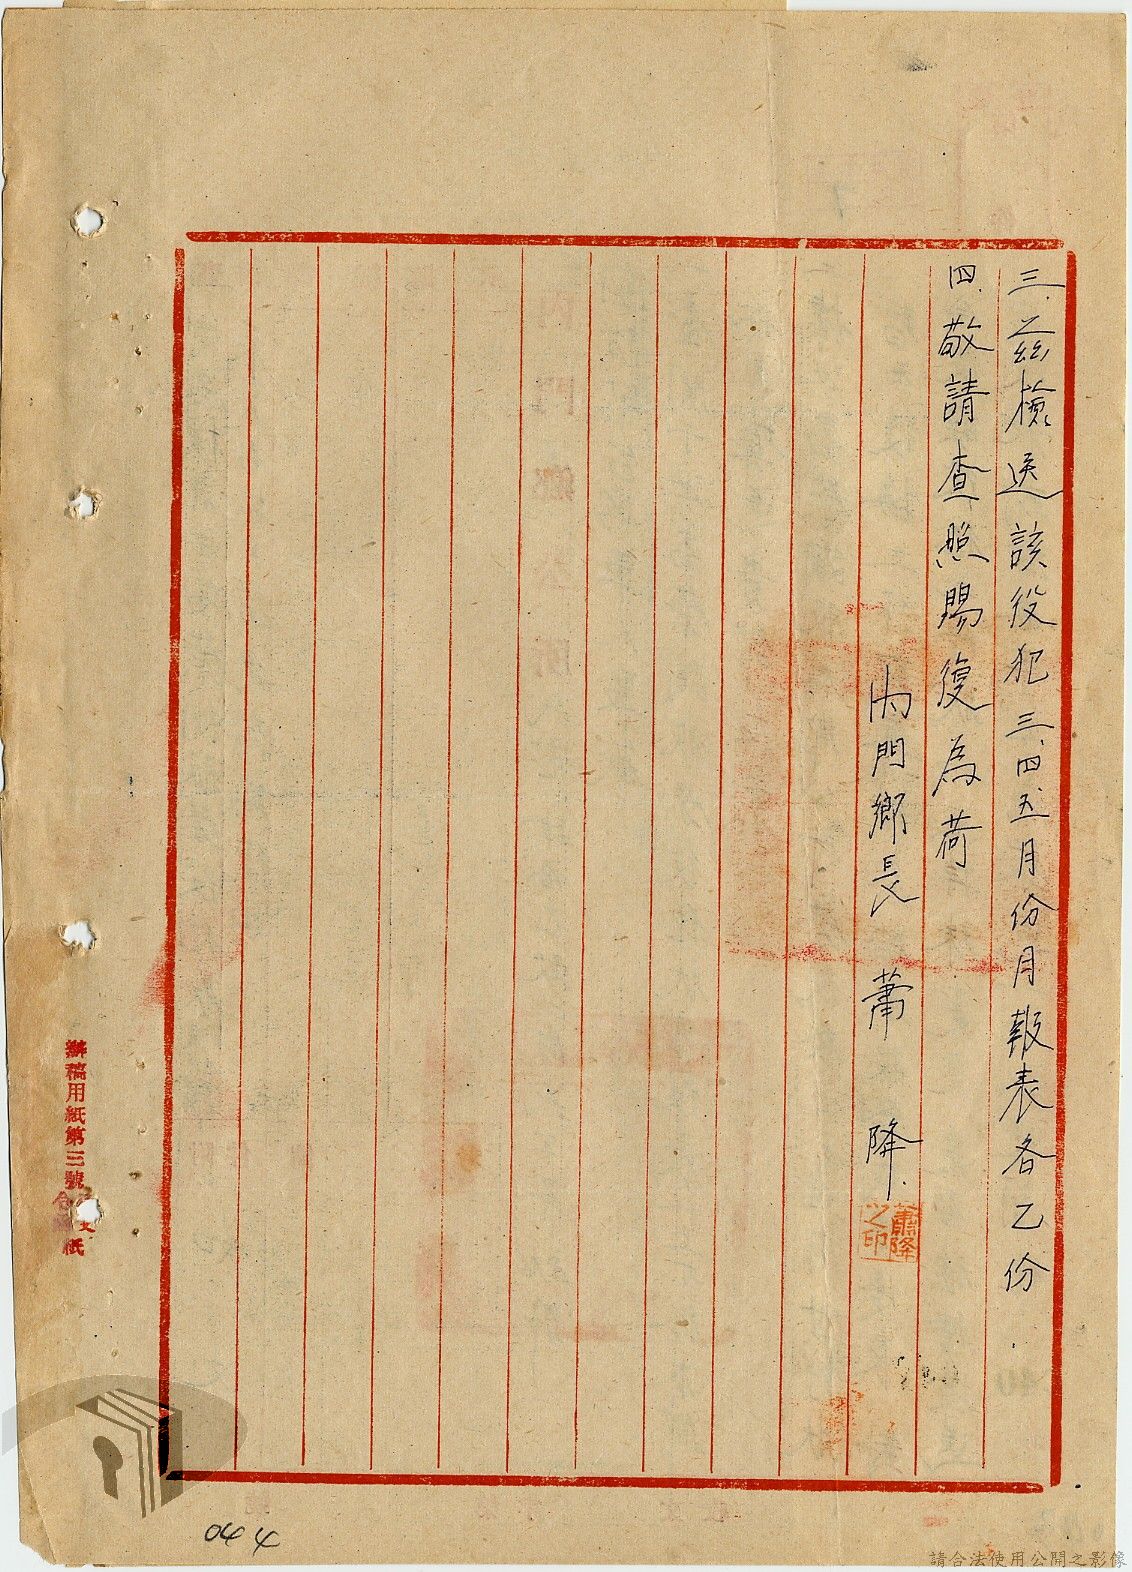 三、茲檢送該役犯三、四、五月份月報表各乙份
四、敬請查照賜復為荷
內門鄉長 蕭 降
蕭降之印
辦稿用紙第三號
紙
044
請合法使用公開之影像